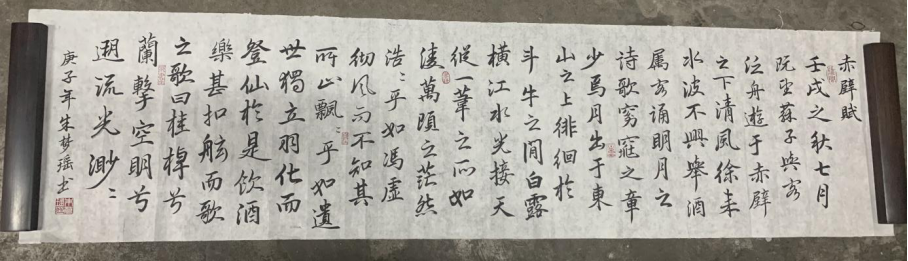 赤壁賦
壬戌之秋七月
既望蘇子與客
泛舟遊于赤壁
之下清風徐来
水波不興舉酒
属客誦明月之
詩歌窈窕之章
少焉月出于東
山之上徘徊於
斗牛之間白露
橫江水光接天
縱一葦之所如
淩萬頃之茫然
浩〻乎如馮虛
御风而不知其
所止飄〻乎如遺
世獨立羽化而
登仙於是飲酒
樂甚扣舷而歌
之歌曰桂棹兮
蘭擊空明兮
遡流光渺〻
庚子年朱梦瑶书